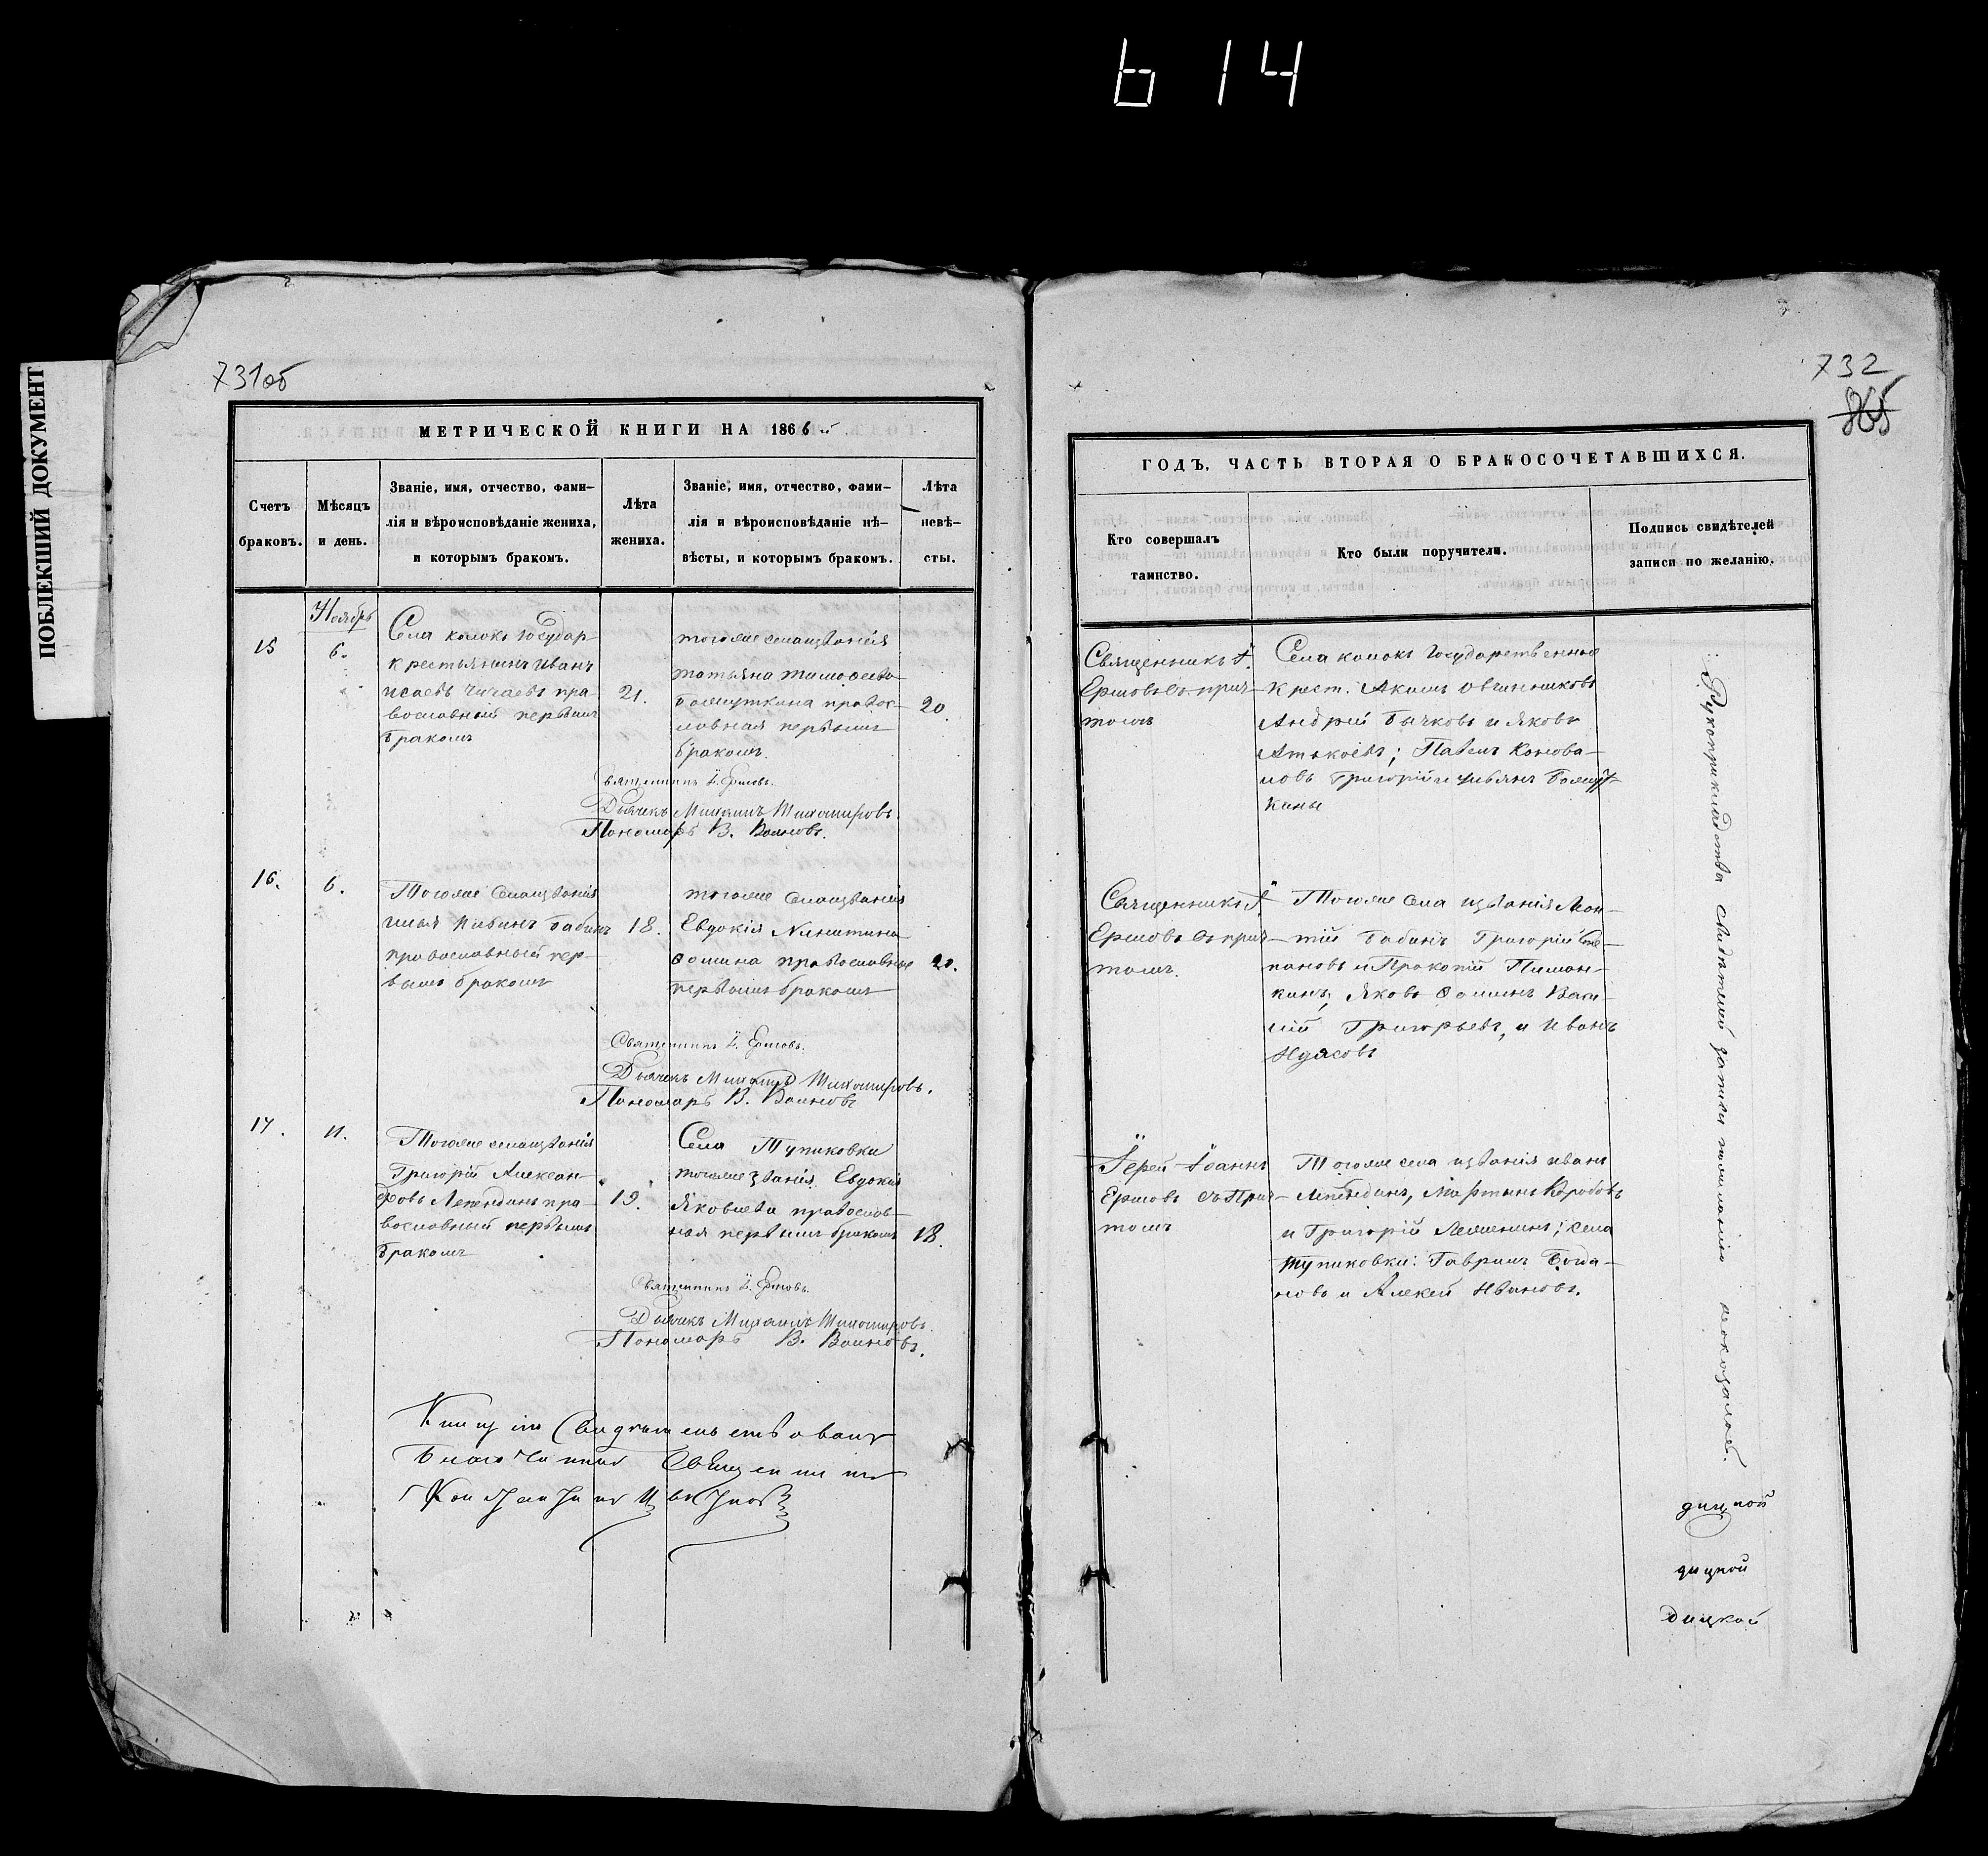 614
ПОБЛЕКШИЙ ДОКУМЕНТ
731об
МЕТРИЧЕСКОЙ КНИГИ НА 1866й
Счетъ браковъ.
Мѣсяцъ и день.
Званіе, имя, отчество, фами-
лія и вѣроисповѣданіе жениха,
и которымъ бракомъ.
Лѣта
жениха.
Званіе, имя, отчество, фами-
лія и вѣроисповѣданіе нѣ-
вѣсты, и которымъ бракомъ.
Лѣта
невѣ-
сты.
Ноябрь
15
6.
Села колокъ Государ
крестьянинъ Иванъ
Исаевъ Чичаевъ пра-
вославный первымъ
бракомъ
21.
тогоже села и званія
татьяна тимоѳеева
православ-
ная первымъ
бракомъ.
20.
Священникъ І. Ершовъ.
Дьячекъ Михаилъ Тихомировъ
Пономарь В. Воиновъ.
16.
6.
Тогоже села и званія
Бабинъ
православный пер-
вымъ бракомъ
18.
тогоже села и званія
Евдокія Никитина
Ѳомина православная
первымъ бракомъ
20.
Священникъ І. Ершовъ.
Дьячекъ Михаилъ Тихомировъ.
Пономарь В. Воиновъ
17.
11.
Тогоже села и званія
Григорій Алексан-
ровъ пра-
вославный первымъ
бракомъ
19.
Села Тупиковки
тогоже званія Евдокія
Яковлева православ-
ная первымъ бракомъ
18.
Священникъ І. Ершовъ.
Дьячекъ Михаилъ Тихомировъ.
Пономарь В. Воиновъ.
Книгу сію Свидѣтельствовалъ
Благочинный Священникъ
Константинъ
732
865
ГОДЪ, ЧАСТЬ ВТОРАЯ О БРАКОСОЧЕТАВШИХСЯ.
Кто совершалъ
таинство.
Кто были поручители.
Подпись свидѣтелей
записи по желанію.
Священникъ І.
Ершовъ съ прич-
томъ
Села колокъ Государственные
крест. Акимъ Овчинниковъ
Андрей Бычковъ и Яковъ
Павелъ Конова-
ловъ Григорій и
кины
Священникъ І.
Ершовъ съ прич-
томъ.
Тогоже села и званія Леон-
тій Бабинъ Григорій Сте-
пановъ и Прокопій Пиман-
кинъ, Яковъ Ѳоминъ Васи-
лій Григорьевъ, и Иванъ
Іерей Іоаннъ
Ершовъ съ Прич-
томъ
Тогоже села и званія иванъ
Мартынъ Коробовъ
и Григорій села
тупиковки: Гаврилъ Богда-
новъ и Алексей Ивановъ.
Рукоприкладства свидѣтелей записи по желанію не оказалось.